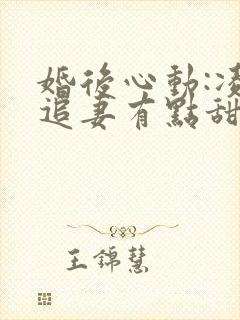 婚後心動:凌
追妻有點甜
王錦慧